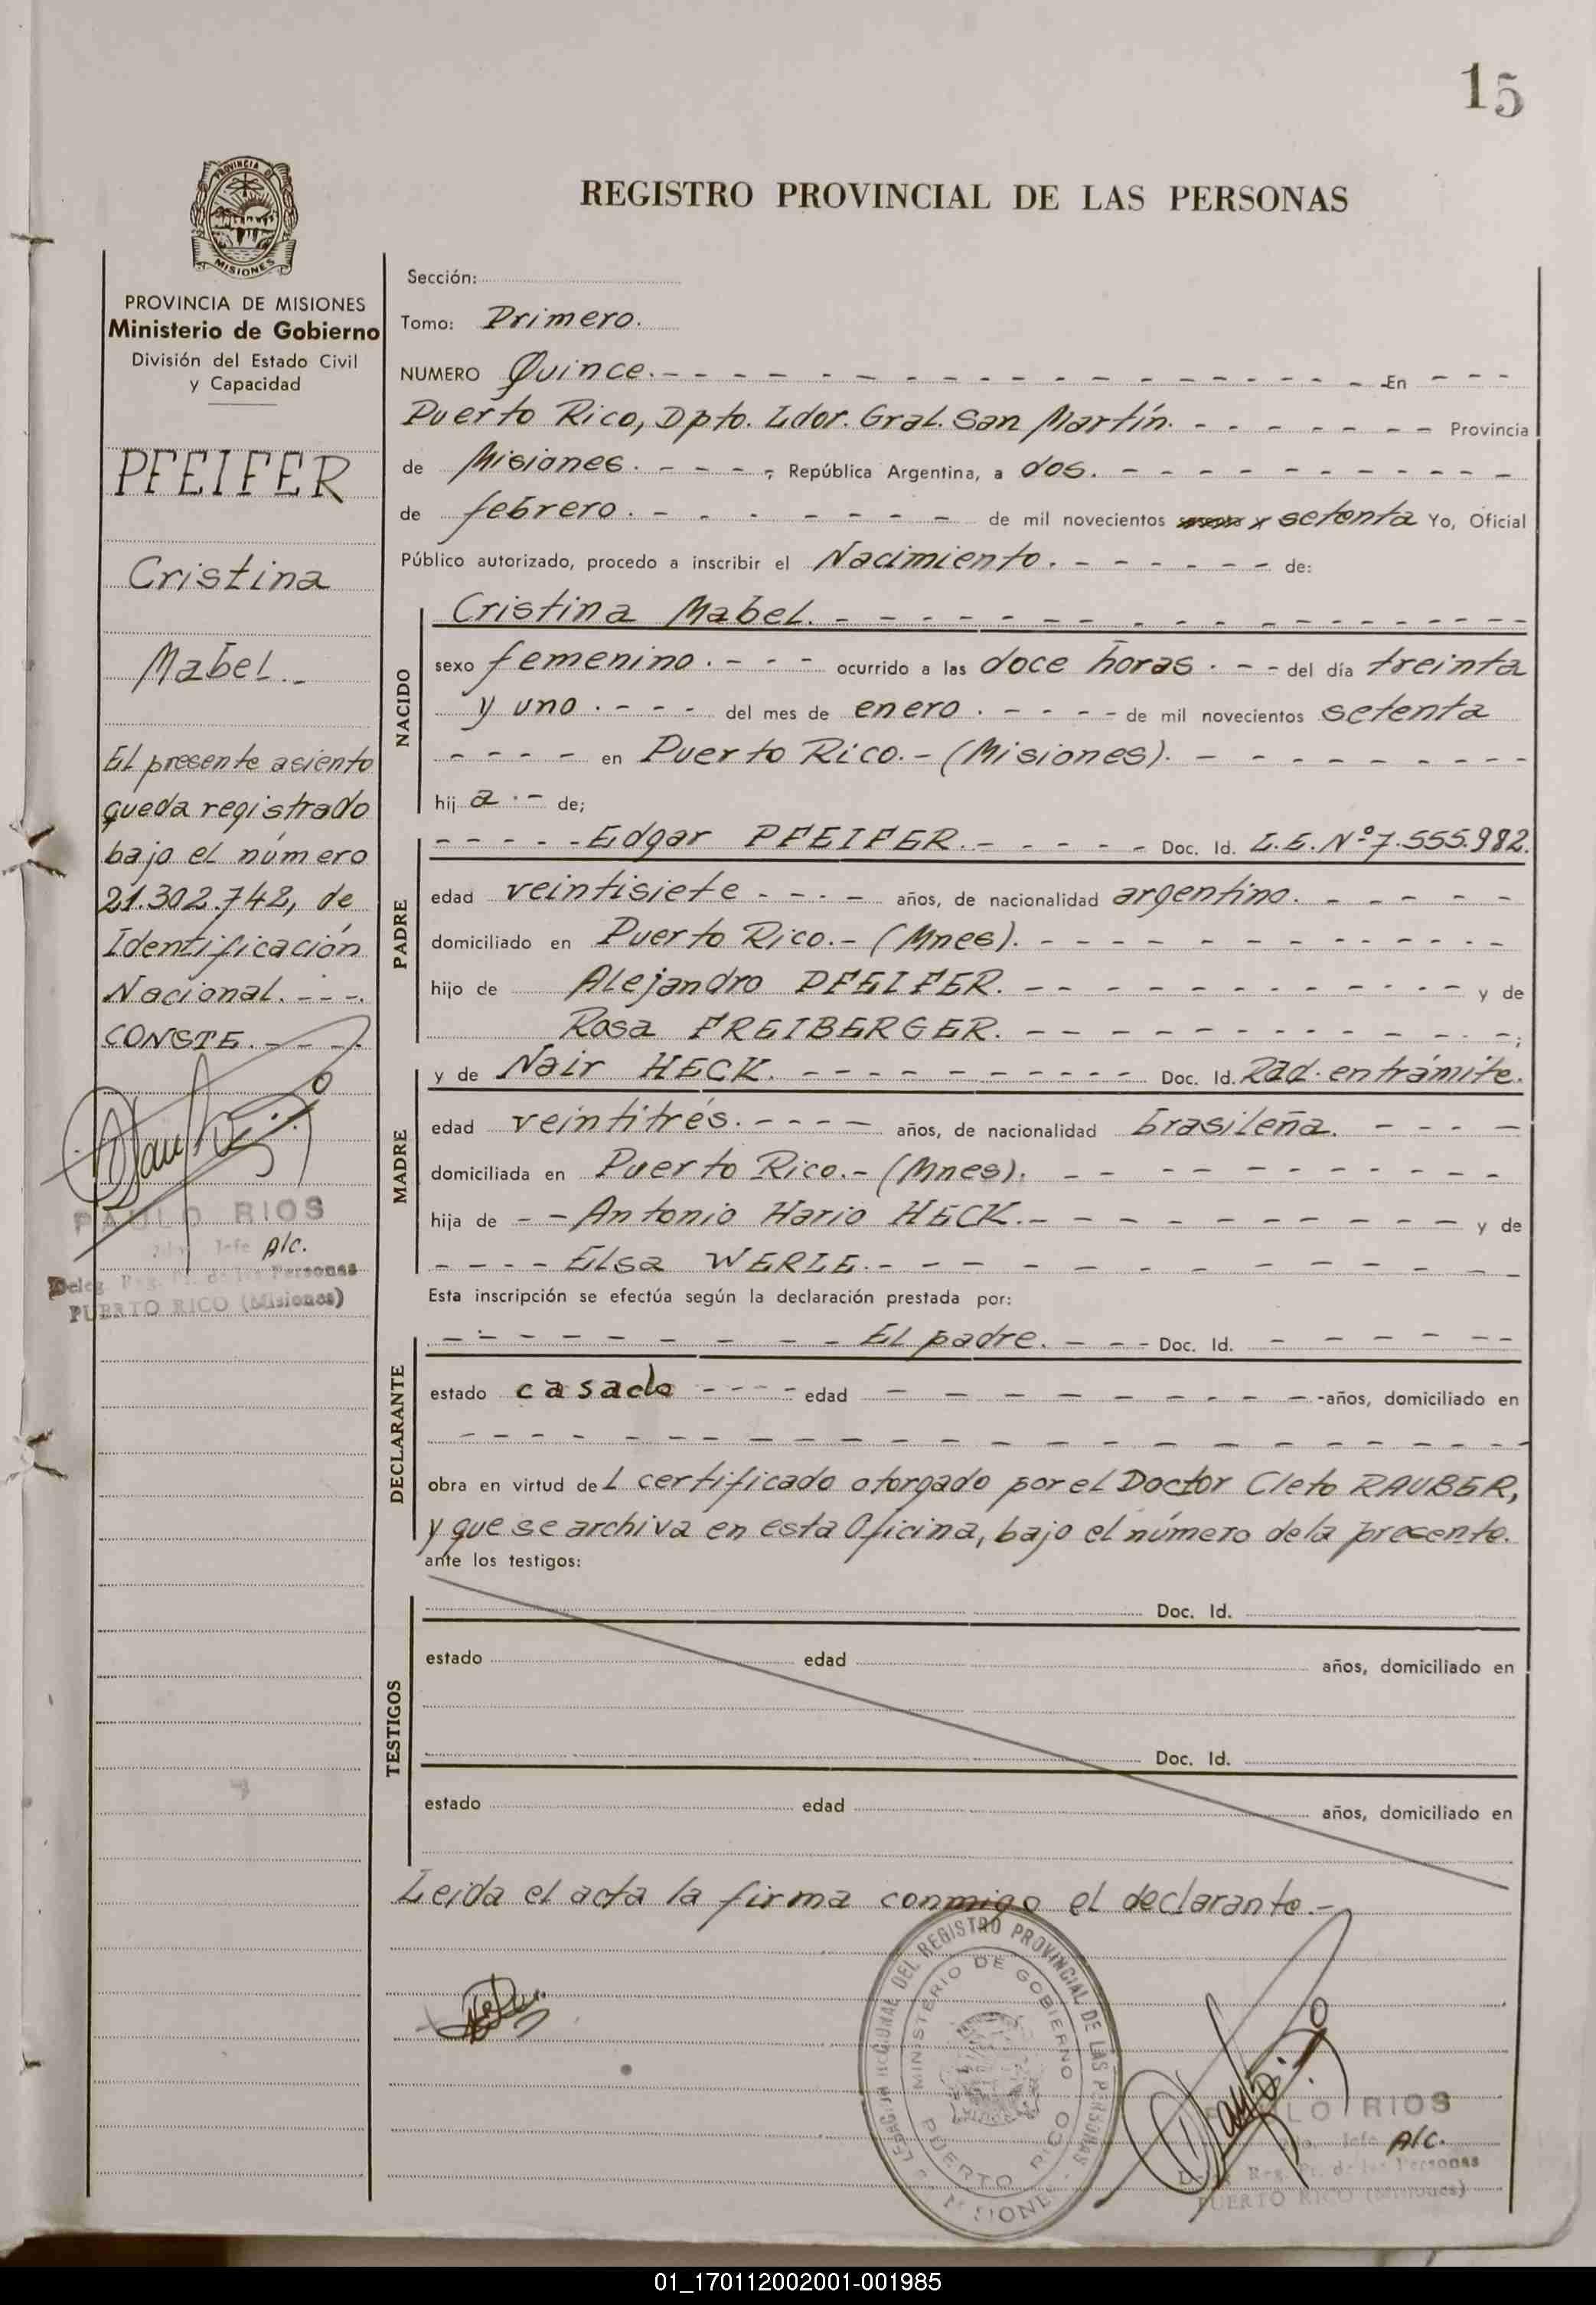 15
REGISTRO PROVINCIAL DE LAS PERSONAS
PROVINCIA
MISIONES
PROVINCIA DE MISIONES
Ministerio de Gobierno
División del Estado Civil
y Capacidad
PFEIFER
Cristina
Mabel.-
El presente asiento
queda registrado
bajo el número
21.302.748, de
Identificación
Nacional. - - -.
CONSTE. - - - -.
PAULO RIOS
Jefe A/c.
Deleg. Reg. Pr. de las Personas
PUERTO RICO (Misiones)
Sección:
Tomo: Primero.
NUMERO Quince. - - - En - - -
Puerto Rico, Dpto. Ldor. Gral. San Martín. - - - Provincia
de Misiones. - - - -, República Argentina, a dos. - - -
de febrero. - - - de mil novecientos setenta Yo, Oficial
Público autorizado, procedo a inscribir el Nacimiento. - - - de:
NACIDO
Cristina Mabel. - - -
sexo femenino. - - - ocurrido a las doce horas. - - del día treinta
y uno. - - - del mes de enero. - - - - de mil novecientos setenta
- - - - en Puerto Rico.- (Misiones). - - -
hij a. - de;
PADRE
- - - - - Edgar PFEIFER. - - - - - Doc. Id. L.E. Nº 7.555.982.
edad veintisiete - - - - años, de nacionalidad argentino. - - - - -
domiciliado en Puerto Rico.- (Mnes). - - -
hijo de Alejandro PFEIFER. - - - y de
Rosa FREIBERGER. - - - ;
MADRE
y de Nair HECK. - - - Doc. Id. Rad. en trámite.
edad veintitrés. - - - - años, de nacionalidad brasileña. - - - -
domiciliada en Puerto Rico.- (Mnes). - - -
hija de - - Antonio Hario HECK. - - - y de
- - - - Elsa WERLE. - - -
Esta inscripción se efectúa según la declaración prestada por:
DECLARANTE
- - - El padre. - - - Doc. Id. - - -
estado casado - - - - edad - - - años, domiciliado en
- - -
obra en virtud de l certificado otorgado por el Doctor Cleto RAUBER,
y que se archiva en esta Oficina, bajo el número de la presente.
ante los testigos:
TESTIGOS
Doc. Id.
estado edad años, domiciliado en
Doc. Id.
estado edad años, domiciliado en
Leida el acta la firma conmigo el declarante.-
DELEGACION REGIONAL DEL REGISTRO PROVINCIAL DE LAS PERSONAS
MINISTERIO DE GOBIERNO
PUERTO RICO
MISIONES
PAULO RIOS
Jefe A/c.
Deleg. Reg. Pr. de las Personas
PUERTO RICO (Misiones)
01_170112002001-001985